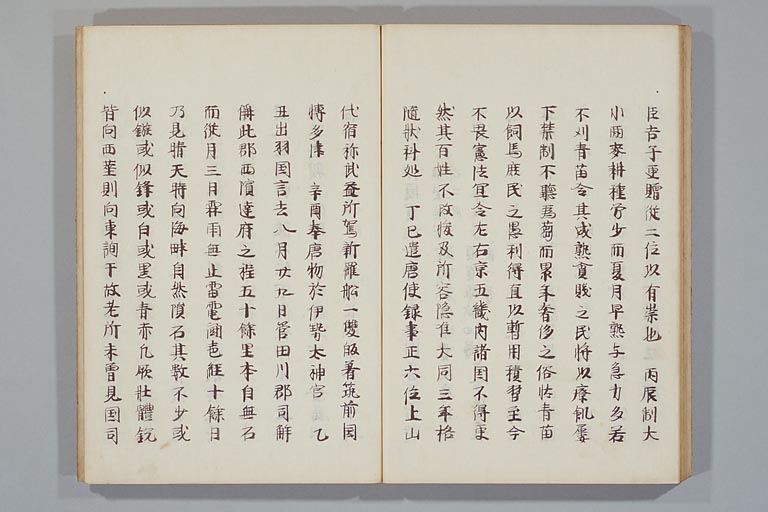 臣吉子更贈従二位以有祟也　丙辰制大
小両麦耕種労少而夏月早熟与急尤多若
不刈青苗令其成熟貧賤之民将以療飢屡
下禁制不聴為蒭而累年奢侈之俗估青苗
以飼馬庶民之愚利得直以暫用積習至今
不畏憲法宜令左右京五畿内諸国不得更
然其百姓不改悛及所容隠准大同三年格
随状科処　丁巳遣唐使録事正六位上山
代宿祢氏益所駕新羅船一隻皈着筑前国
博多津　辛酉奉唐物於伊勢大神宮　乙
丑出羽国言去八月廿九日管田川郡司解
偁此郡西濱達府之程五十餘里本自無石
而従月三日霖雨無止雷電闘声経十餘日
乃見晴天時向海畔自然隕石其数不少或
似鏃或似鋒或白或黒或青赤凡厥壮體鋭
皆向西茎則向東詢于故老所未曽見国司